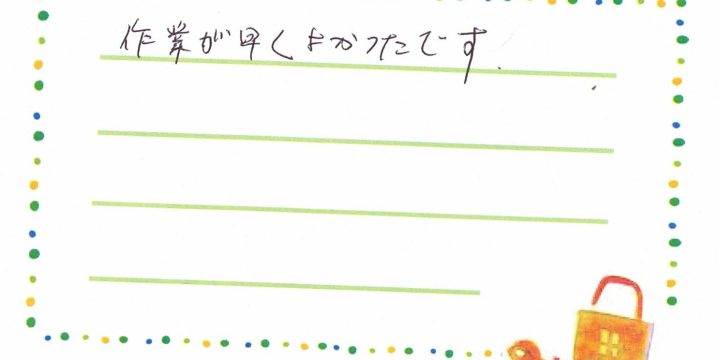 作業が早くよかったです.